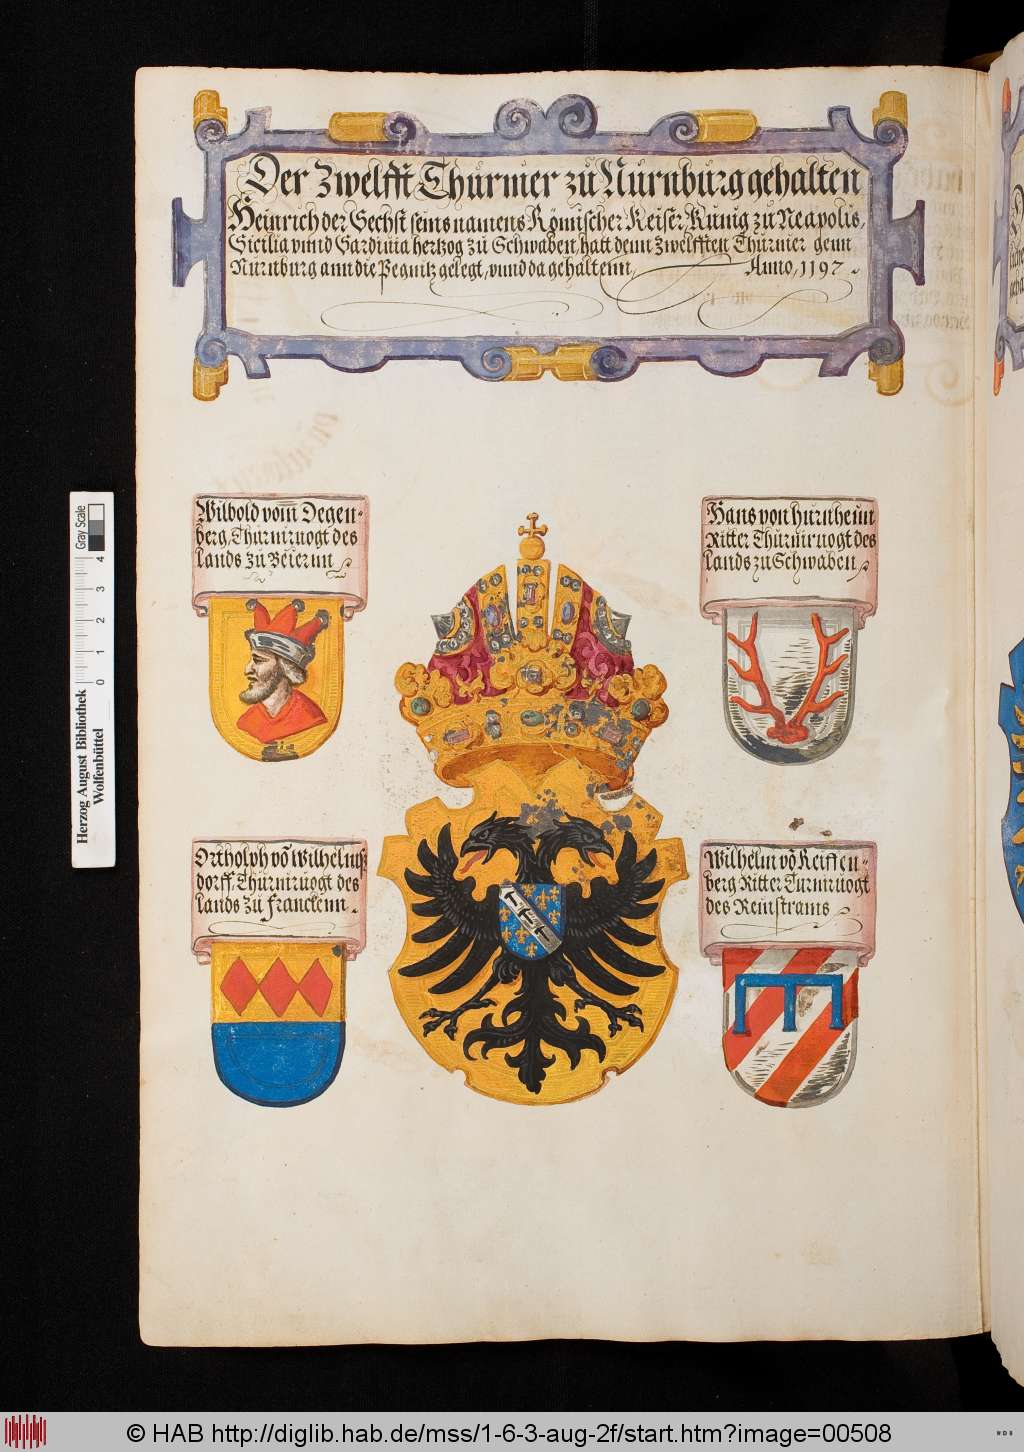 Der Zwelfft Thurnier zů Nürnburg gehalten
Heinrich der Sechst seins namens Römischer Keiser, Kunig zu Neapolis,
Sicilia vnnd Sardinia hertzog zů Schwaben, hatt denn Zwelfften Thurnier genn
Nürnburg ann die Pegnitz gelegt, vnnd da gehaltenn, Anno, 1197.
Wilbold vom Degen-
berg, Thurnirvogt des
lands zů Beiernn
Hans von hurnheim
Ritter Thurnirvogt des
lands zu Schwaben,
Ortholph võ Wilhelmß
dorff, Thurnirvogt des
lands zů Franckenn.
Wilhelm võ Reiffen-
berg Ritter Turnirvogt
des Reinstrams
Herzog August Bibliothek
Wolfenbüttel
Gray Scale
0 1 2 3 4
© HAB http://diglib.hab.de/mss/1-6-3-aug-2f/start.htm?image=00508
WDB